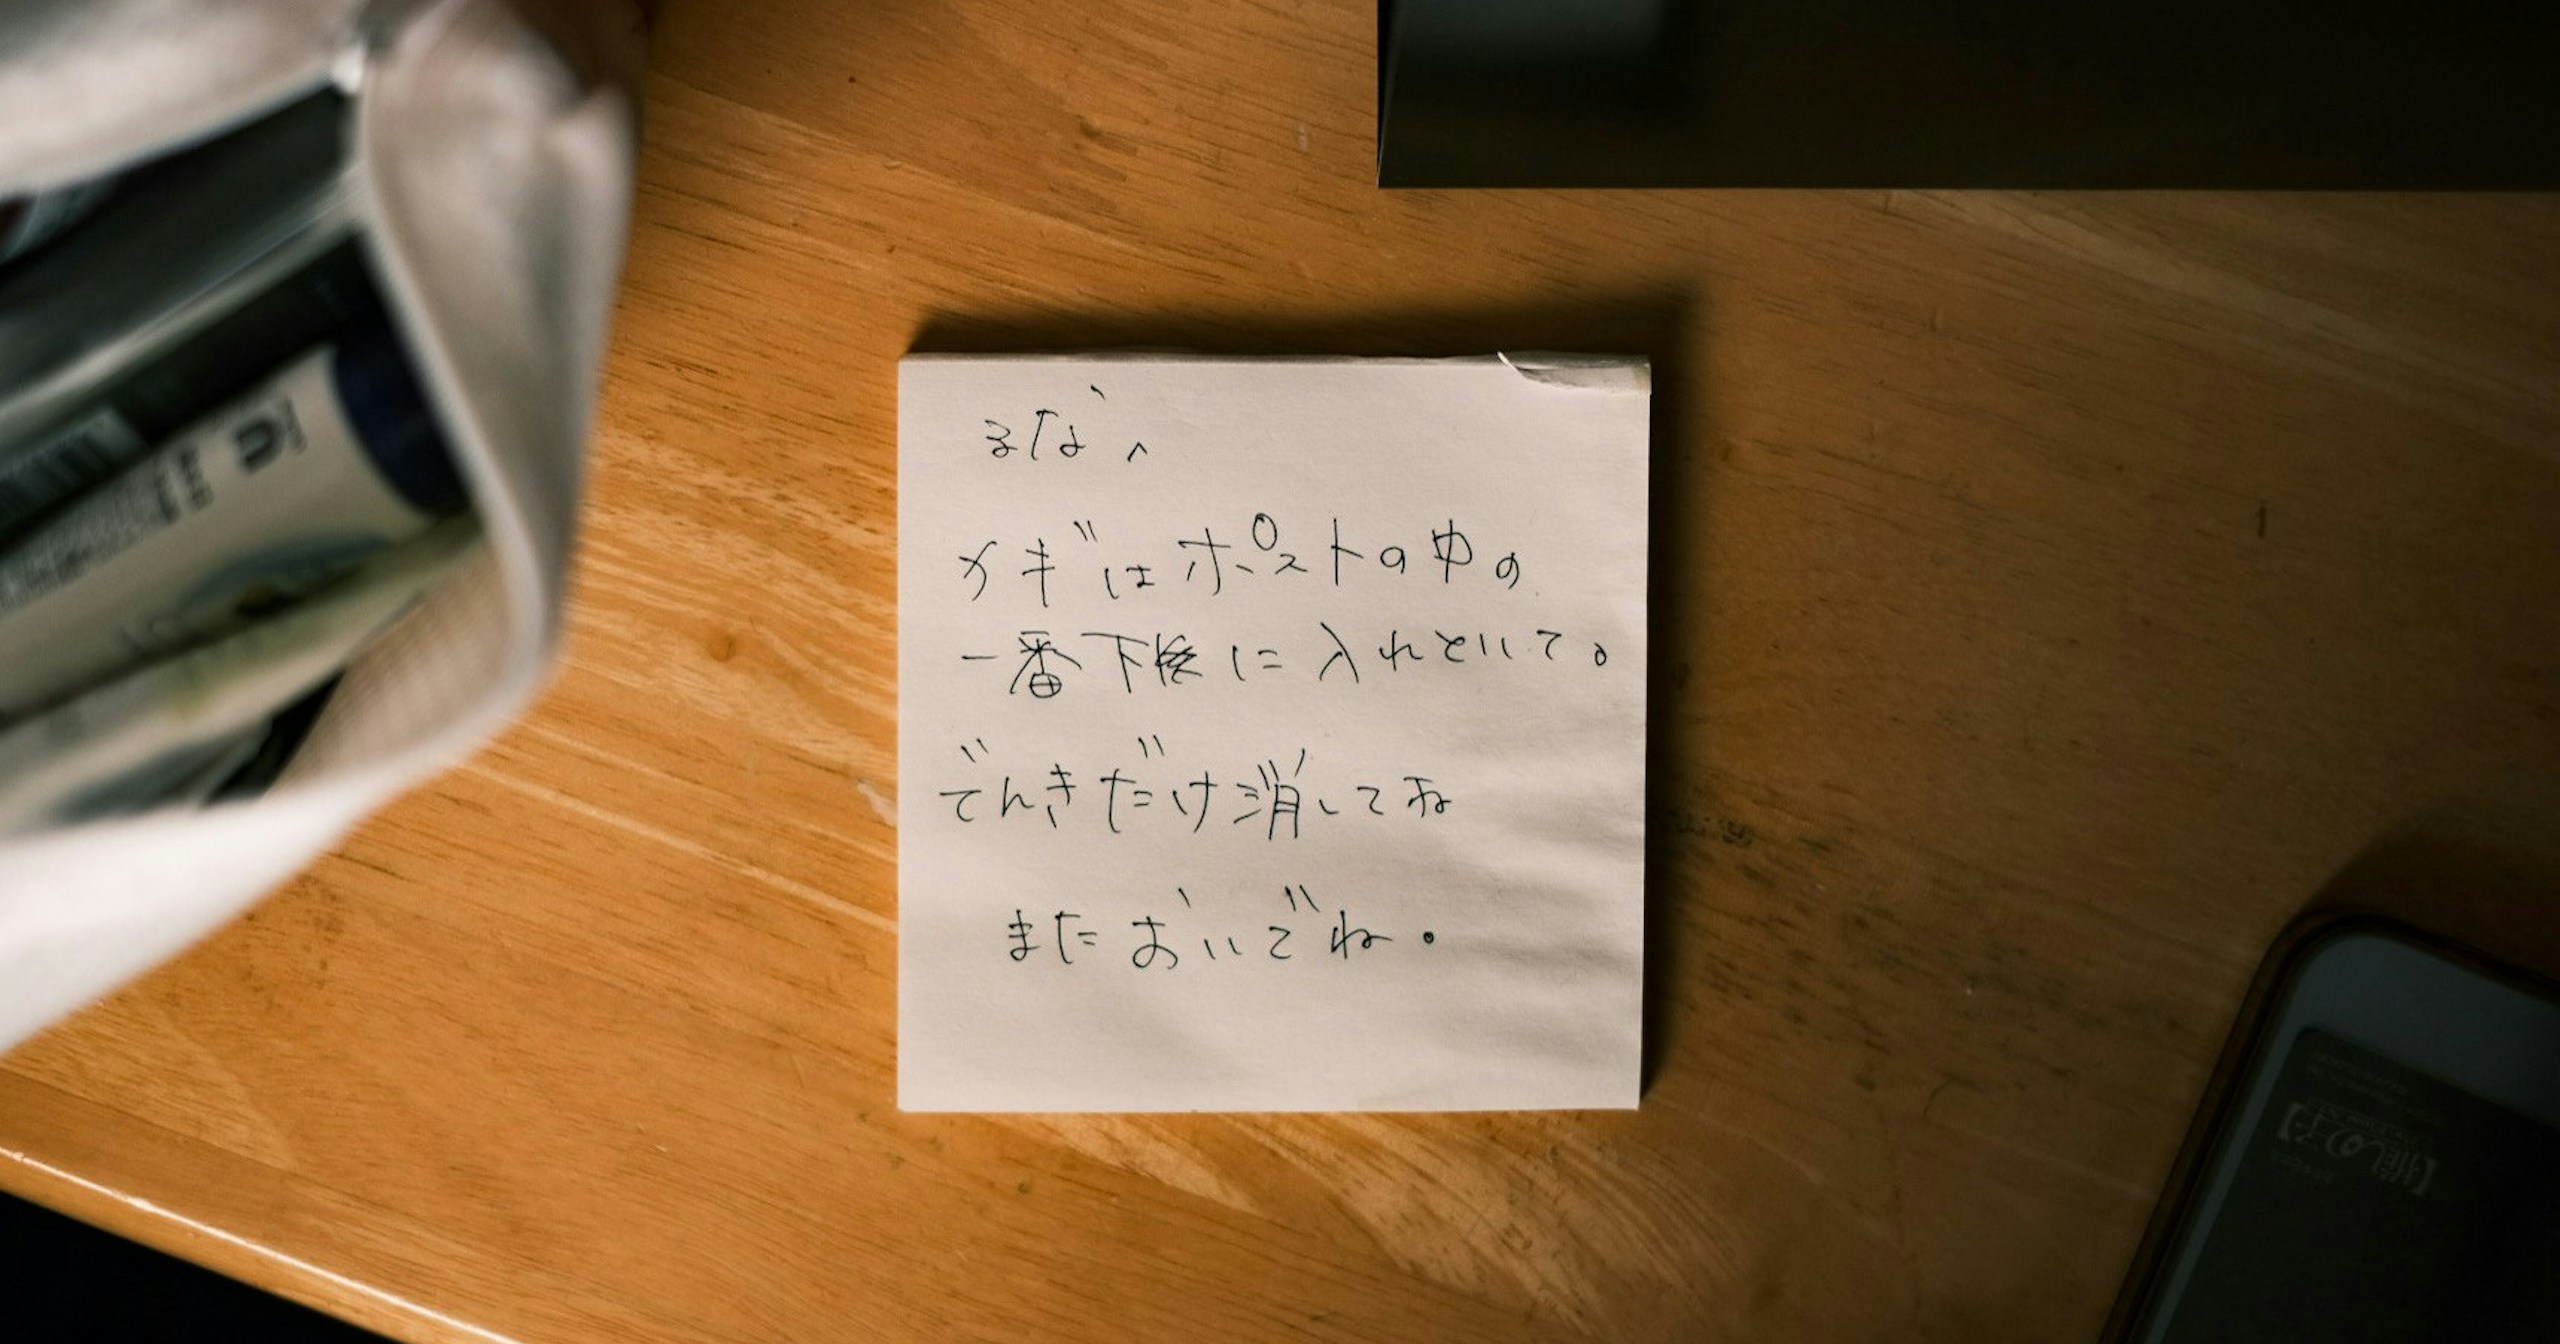 るな、
カギはポストの中の
一番下後に入れといて。
でんきだけ消してね
またおいでね。